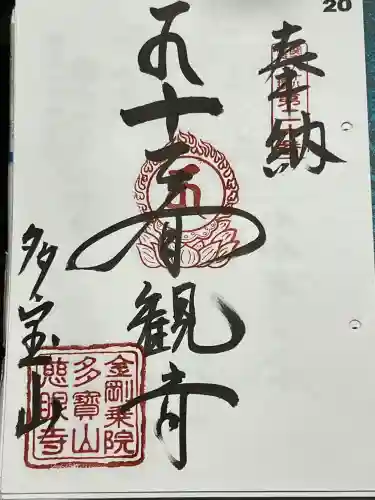 20
奉納
十一面観音
多宝山
金剛乗院
多寶山
慈眼寺